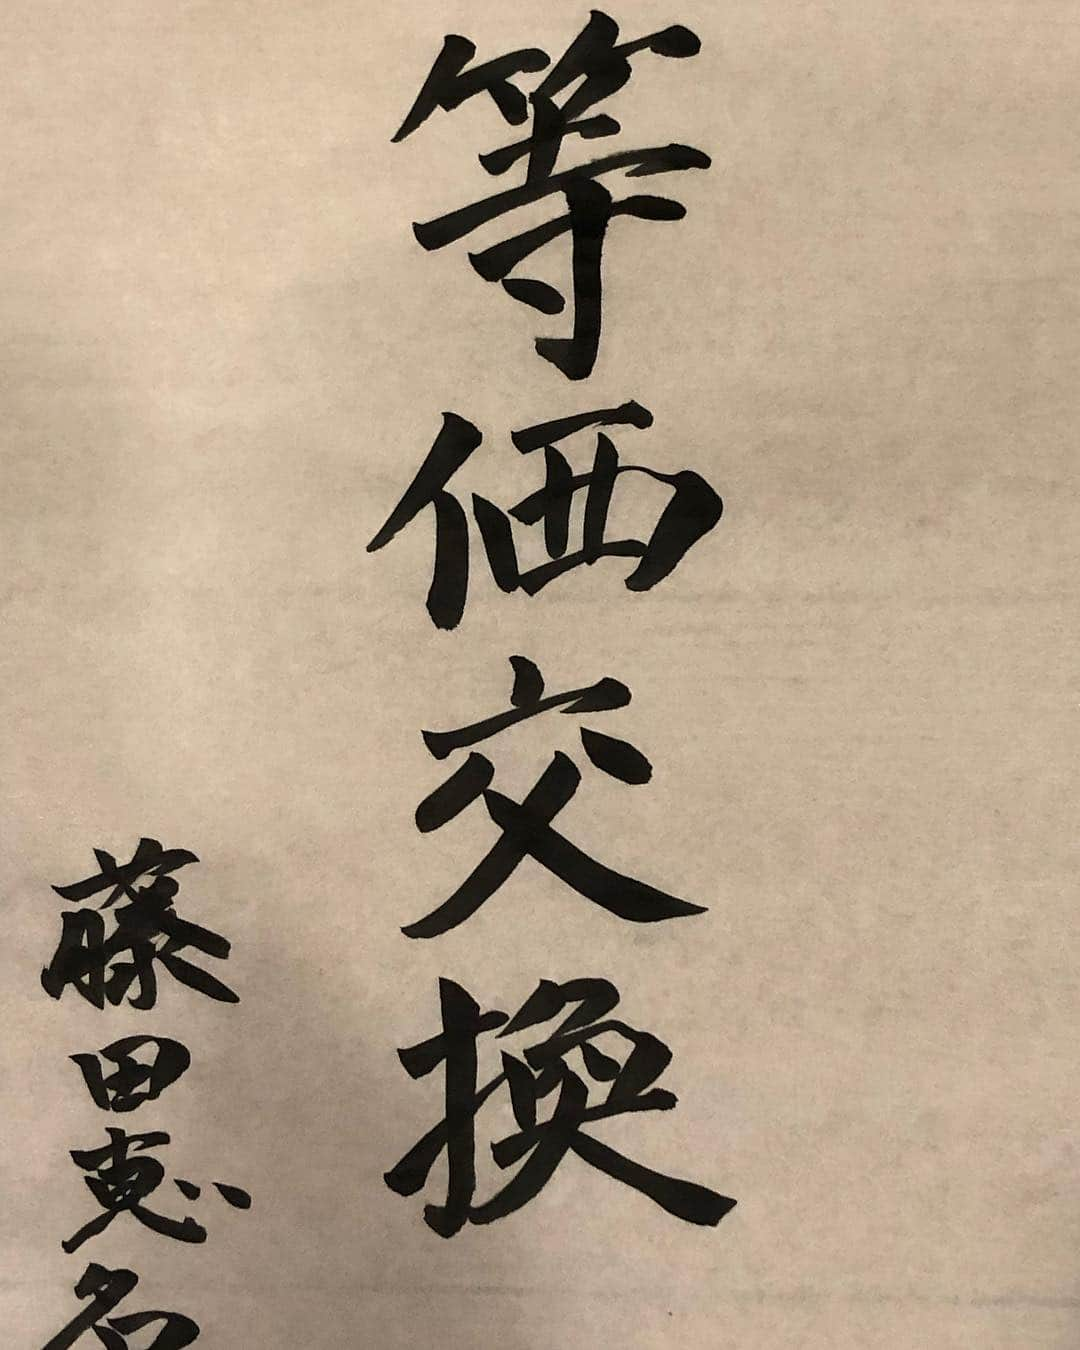 等価交換
藤田恵名